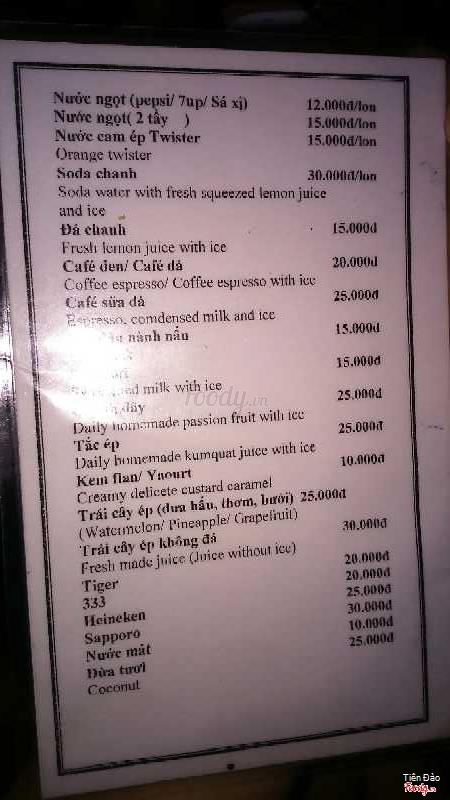 Nước ngọt (pepsi/ 7up/ Sá xị) 12.000đ/lon
Nước ngọt( 2 tây ) 15.000đ/lon
Nước cam ép Twister 15.000đ/lon
Orange twister
Soda chanh 30.000đ/lon
Soda water with fresh squeezed lemon juice
and ice
Đá chanh 15.000đ
Fresh lemon juice with ice
Café đen/ Café đá 20.000đ
Coffee espresso/ Coffee espresso with ice
Café sữa đá 25.000đ
Espresso, comdensed milk and ice
nành nấu 15.000đ
15.000đ
milk with ice
dây 25.000đ
Daily homemade passion fruit with ice
Tắc ép 25.000đ
Daily homemade kumquat juice with ice
Kem flan/ Yaourt 10.000đ
Creamy delicete custard caramel
Trái cây ép (dưa hấu, thơm, bưởi) 25.000đ
(Watermelon/ Pineapple/ Grapefruit)
Trái cây ép không đá 30.000đ
Fresh made juice (Juice without ice)
Tiger 20.000đ
333 20.000đ
Heineken 25.000đ
Sapporo 30.000đ
Nước mát 10.000đ
Dừa tươi 25.000đ
Coconut
foody.vn
Tiên Đào
foody.vn